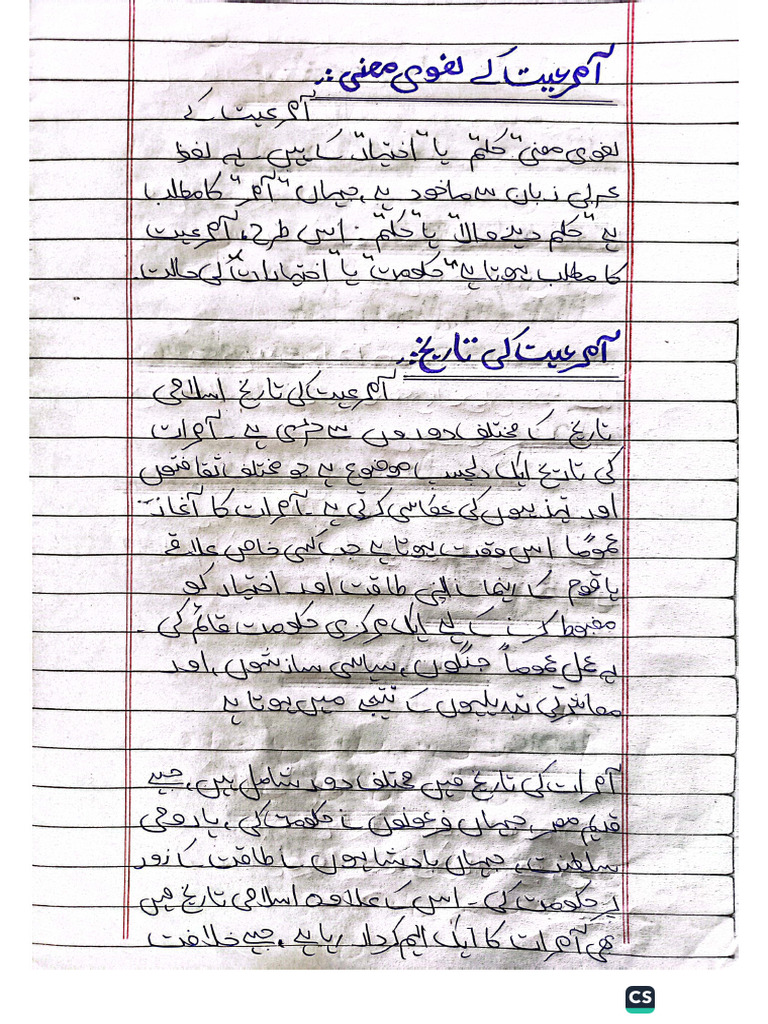 آمرعیت کے لغوی معنی:.
آمرعیت کے
لغوی معنی "حکم" یا "اختیار" کا ہیں۔ یہ لفظ
عربی زبان سے ماخود ہے، جہاں "آمر" کا مطلب
ہے "حکم دینے والا" یا "حکم"۔ اس طرح، آمرعیت
کا مطلب ہوتا ہے "حکومت" یا "اختیارات" کی حالت۔
آمرعیت کی تاریخ:.
آمرعیت کی تاریخ اسلامی
تاریخ کے مختلف دوروں سے جڑی ہے۔ آمرات
کی تاریخ ایک دلچسب موضوع ہے جو مختلف ثقافتوں
اور تہذیبوں کی عکاسی کرتی ہے۔ آمرات کا آغاز
عموماً اس وقت ہوتا ہے جب کسی خاص علاقے
یا قوم کے رہنما نے اپنی طاقت اور اختیار کو
مضبوط کرنے کے لیے ایک مرکزی حکومت قائم کی۔
یہ عمل عموماً جنگوں، سیاسی سازشوں، اور
معاشرتی تبدیلیوں کے نتیجے میں ہوتا ہے
آمرات کی تاریخ میں مختلف دور شامل ہیں، جیسے
قدیم مصر، جہاں فرعونوں نے حکومت کی، یا رومی
سلطنت، جہاں بادشاہوں نے طاقت کے زور
پر حکومت کی۔ اس کے علاوہ اسلامی تاریخ میں
بھی آمرات کا ایک اہم کردار رہا ہے، جیسے خلافت
CS